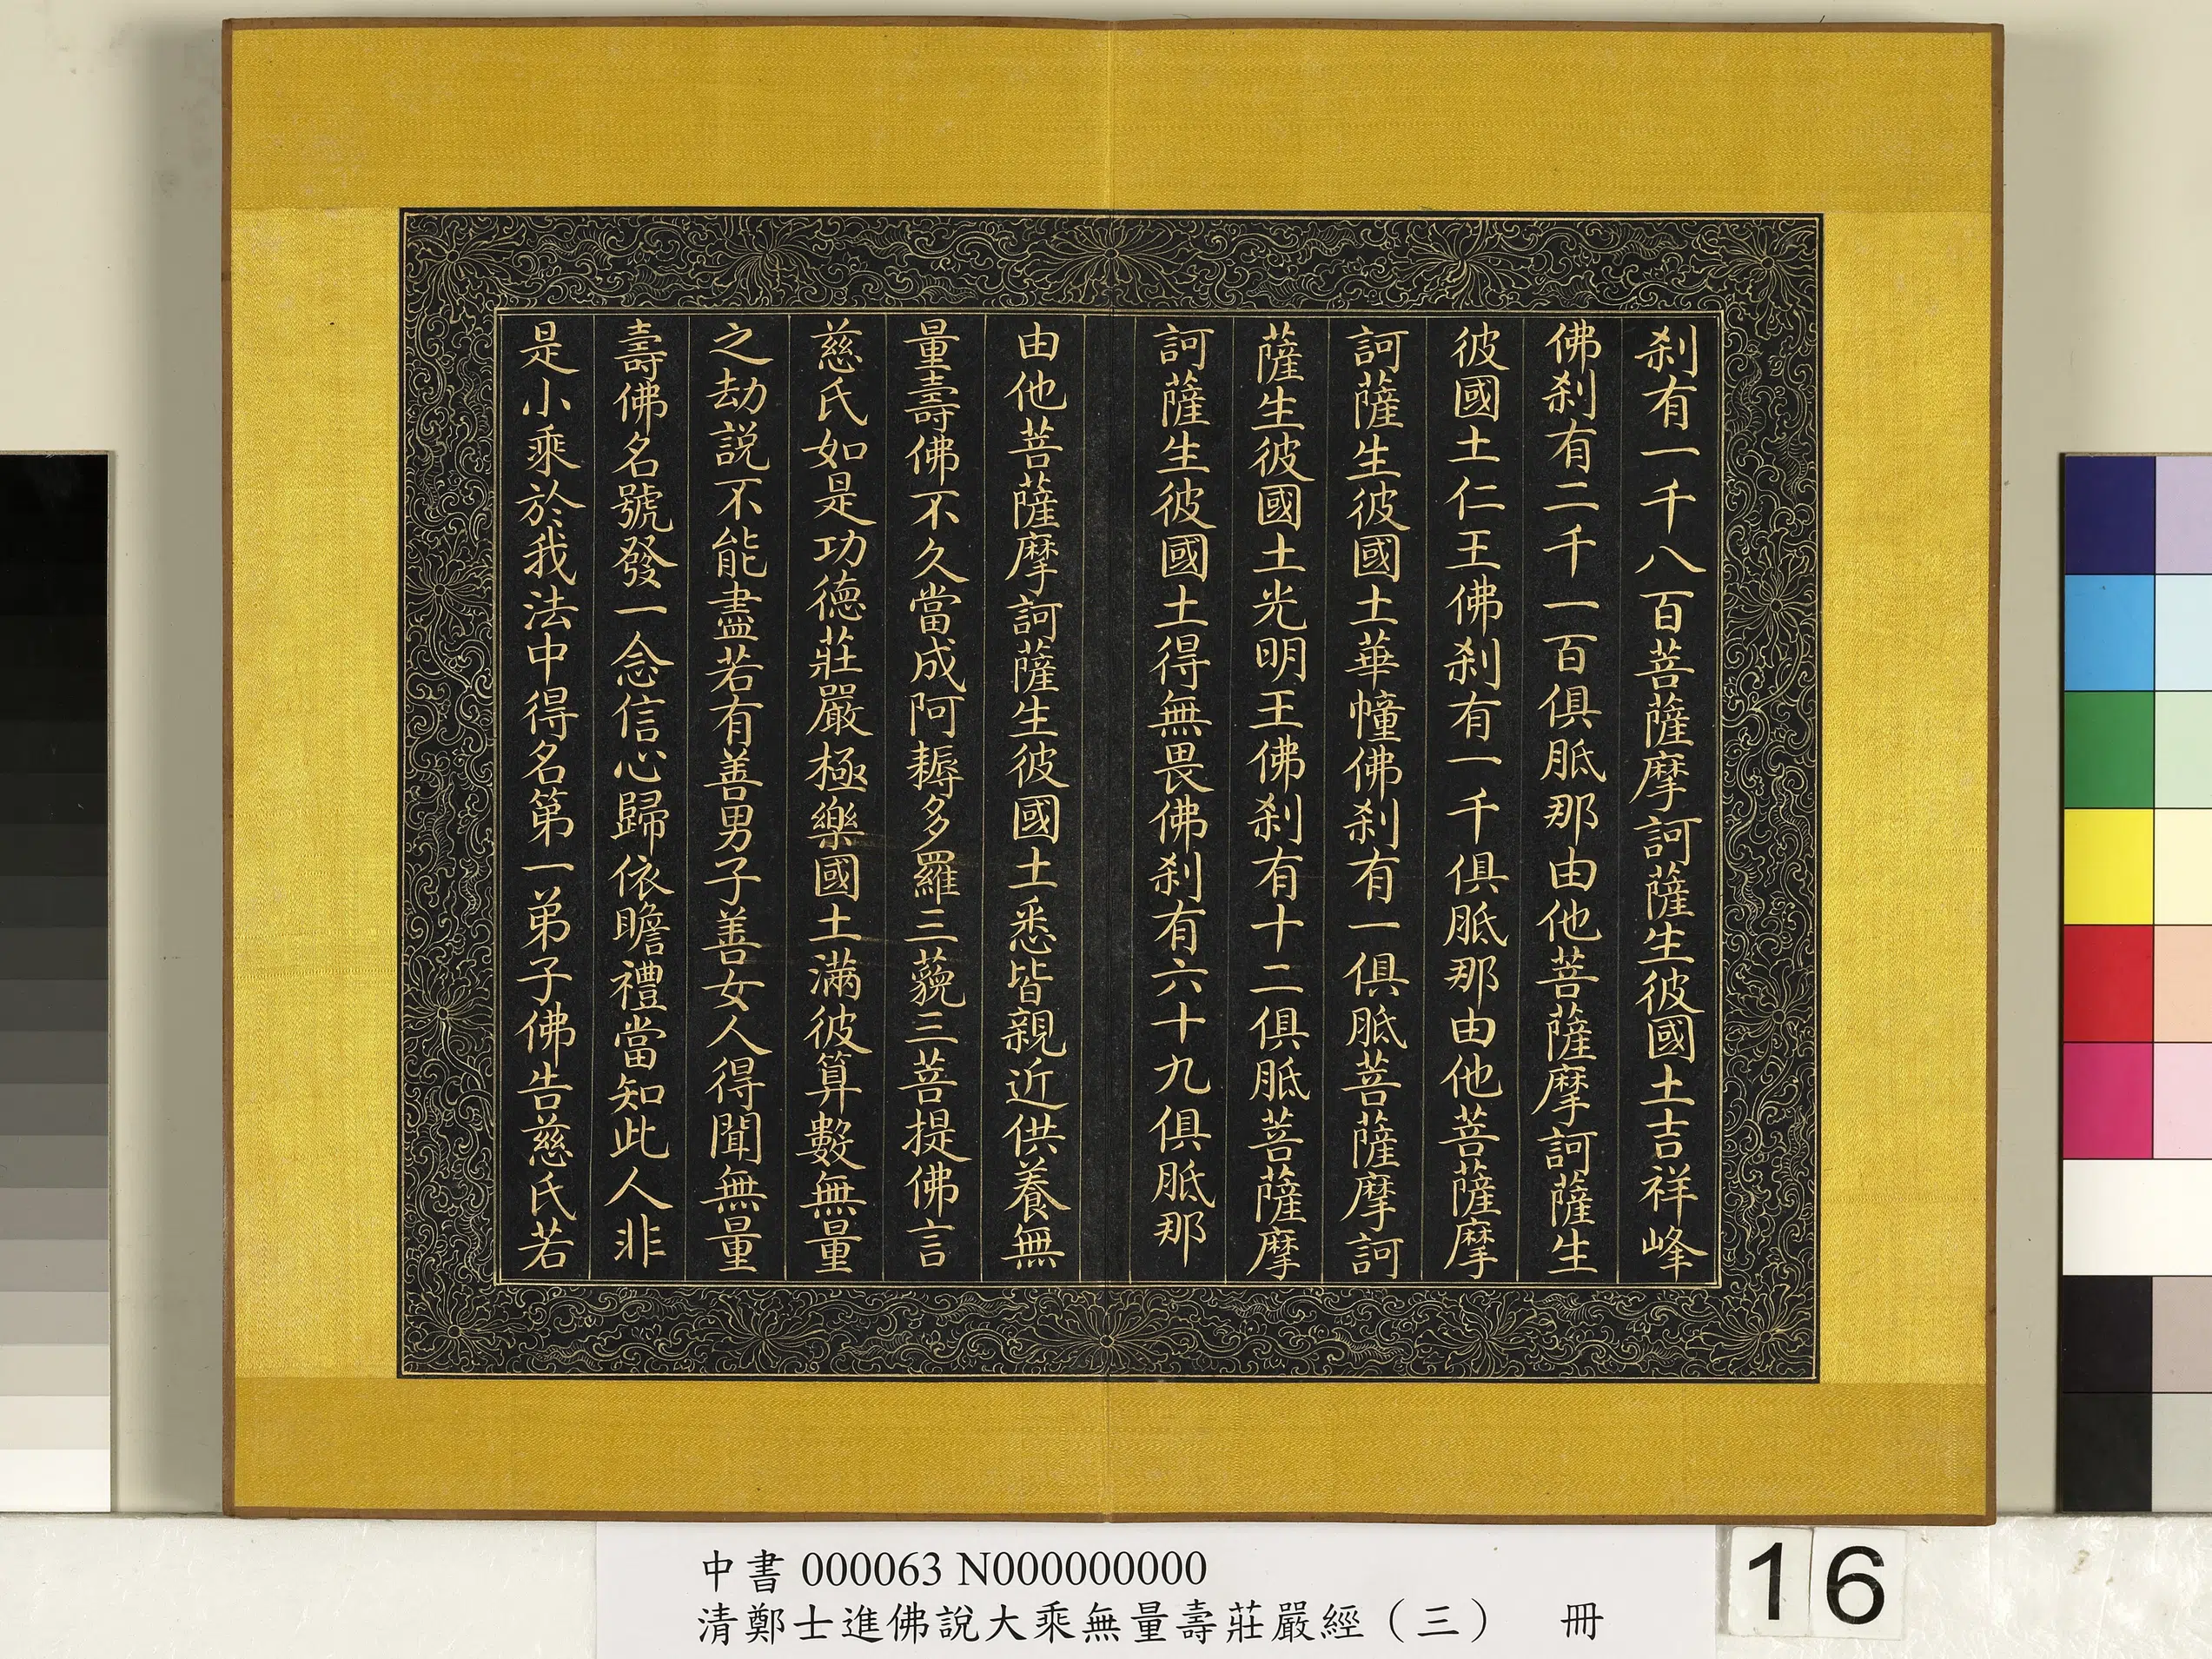 刹有一千八百菩薩摩訶薩生彼國土吉祥峰
佛刹有二千一百俱胝那由他菩薩摩訶薩生
彼國土仁王佛刹有一千俱胝那由他菩薩摩
訶薩生彼國土華幢佛刹有一俱胝菩薩摩訶
薩生彼國土光明王佛刹有十二俱胝菩薩摩
訶薩生彼國土得無畏佛刹有六十九俱胝那
由他菩薩摩訶薩生彼國土悉皆親近供養無
量壽佛不久當成阿耨多羅三藐三菩提佛言
慈氏如是功德莊嚴極樂國土滿彼算數無量
之劫說不能盡若有善男子善女人得聞無量
壽佛名號發一念信心歸依瞻禮當知此人非
是小乘於我法中得名第一弟子佛告慈氏若
中書 000063 N000000000
清鄭士進佛說大乘無量壽莊嚴經（三） 冊
16